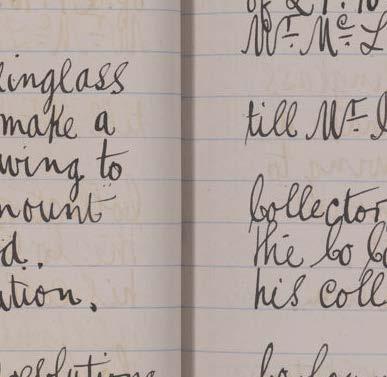 inglass
make a
wing to
mount
d.
ution.
esolutions
of £1.10
Mr Mc L
till Mr
Collector
the Co Co
his coll